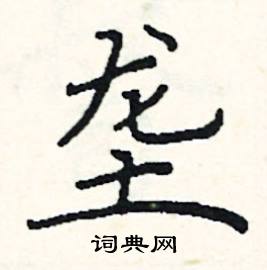 垄
词典网